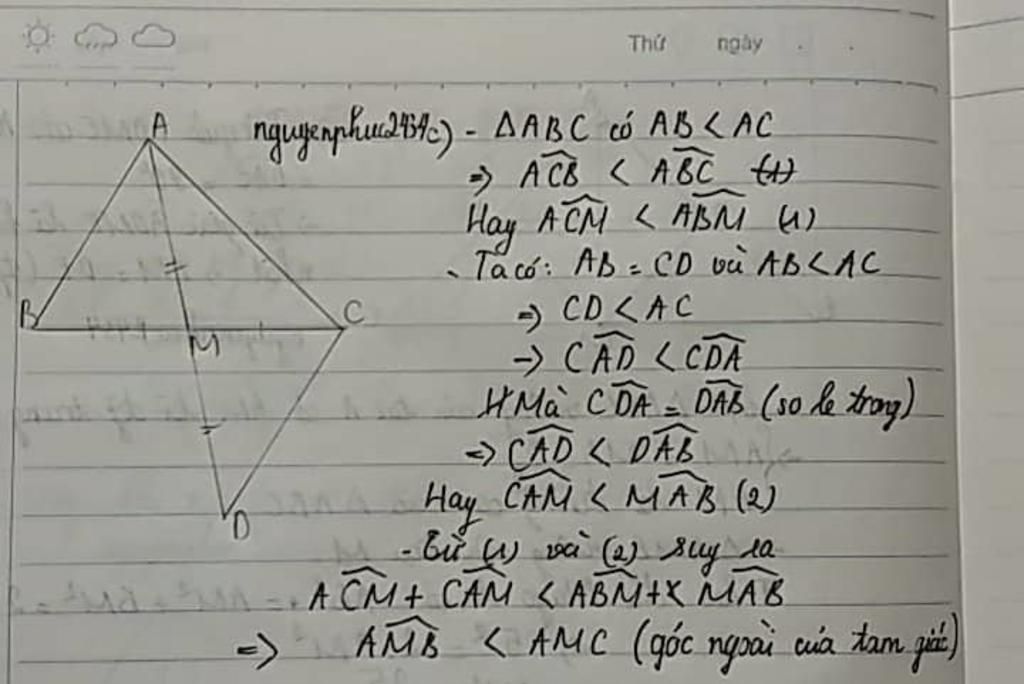 Thứ ngày . .
A
nguyenphuc2434c) - ΔABC có AB < AC
=> ACB < ABC (1)
Hay ACM < ABM (1)
- Ta có: AB = CD và AB < AC
B M C
=> CD < AC
-> CAD < CDA
Mà CDA = DAB (so le trong)
=> CAD < DAB
D
Hay CAM < MAB (2)
- Từ (1) và (2) suy ra
ACM + CAM < ABM + MAB
=> AMB < AMC (góc ngoài của tam giác)